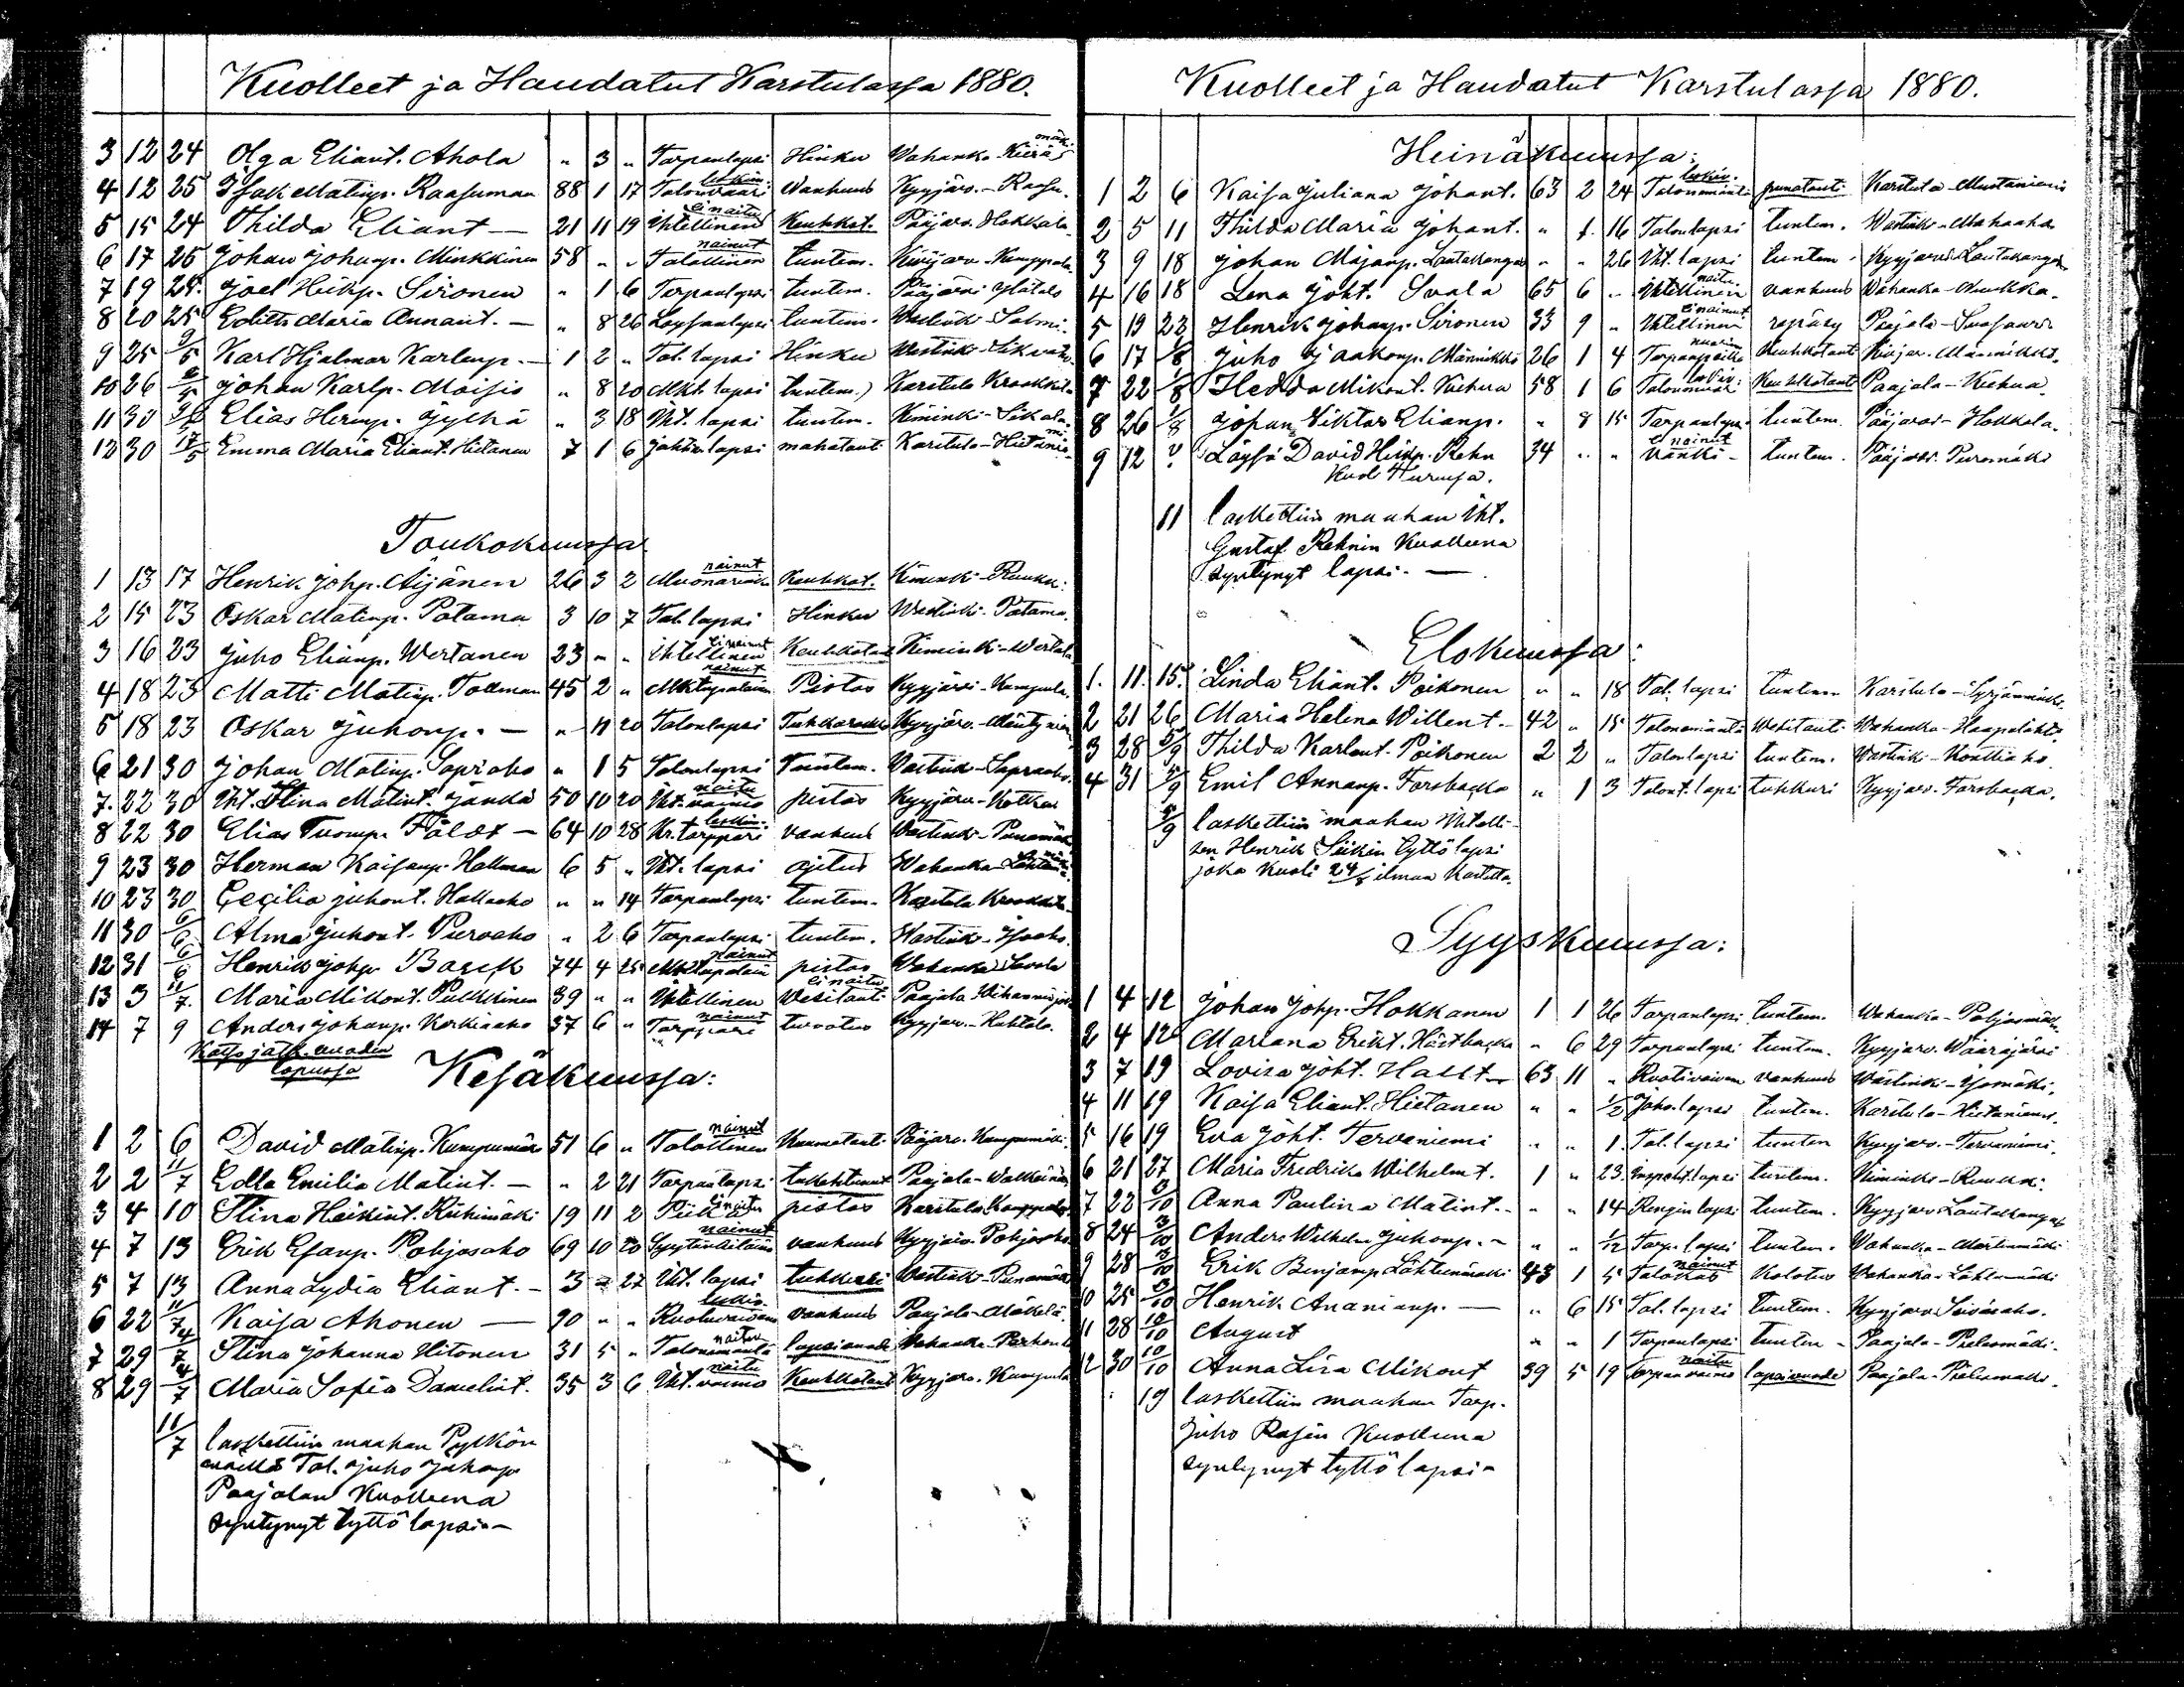 Kuolleet ja Haudatut Karstulassa 1880.
3 12 24 Olga Eliant. Ahola " 3 " Torpanlapsi Hinku Wahanka-Kieräs
4 12 25 Isak Matinp. Raasuman 88 1 17 Talonvaari leskim. Wanhuus Kyyjärv.-Raasu.
5 15 24 Thilda Eliant — 21 11 19 Ihtellinen ei naitu Keuhkot. Pääjärv. Hokkala
6 17 25 Johan Johanp. Minkkinen 58 " " Talollinen nainut tuntem. Kivijärv.-Kumppala
7 19 25. Joel Heikp. Sironen " 1 6 Torpanlapsi tuntem. Pääjärvi
8 20 25 Edith Maria Annant. — " 8 26 tuntem. Wastinki-Salmi.
9 25 9/5 Karl Hjalmar Karlenp. — 1 2 " Tal. lapsi Hinku Wastinki
10 26 Johan Karlp. Moisio " 8 20 Mkt. lapsi tuntem. Karstula Krookkila
11 30 Elias Hermp. Jylhä " 3 18 Iht. lapsi tuntem. Kiminki-Sikala
12 30 17/5 Emma Maria Eliant. Hietanen 7 1 6 lapsi mahataut Karstula-Hietanie
Toukokuussa
1 13 17 Henrik Johp. Äijänen 26 3 2 Muonarenki nainut Keuhkot. Kiminki-Ruuka.
2 15 23 Oskar Matinp. Potama 3 10 7 Tal. lapsi Hinku Wastinki-Potama.
3 16 23 Juho Elianp. Wertanen 23 " " Ihtellinen ei nainut Keuhkotaut Kiminki-Wertala
4 18 23 Matti Matinp. Tollman 45 2 " Mkitupalain nainut Pistos Kyyjärvi-Kumpula.
5 18 23 Oskar Juhonp. — " 11 20 Talonlapsi Tuhkarokko Kyyjärv.
6 21 30 Johan Matinp. Sopraho " 1 5 Talonlapsi Tuntem. Wastink-Sopraaho.
7. 22 30 Iht. Stina Matint. Janka 50 10 20 Iht. vaimo naitu pistos Kyyjärv.
8 22 30 Elias Tuomp. Földt — 64 10 28 Kr. torppari leskim. vanhuus Wastink-Punamäki
9 23 30 Herman Kaisanp. Hallman 6 5 " Iht. lapsi ajetus Wahanka
10 23 30 Cecilia Juhont. Hallaaho " " 14 Torpanlapsi tuntem. Karstula Krookkila
11 30 6/6 Alma Juhont. Pieroaho " 2 6 Torpanlapsi tuntem. Wastinki-Isoaho.
12 31 6/6 Henrik Johp. Basik 74 4 25 Mkitupalain nainut pistos Wahanka Savola
13 3 11/7. Maria Mikont. Pulkkinen 39 " " Ihtellinen ei naitu Vesitauti Paajala
14 7 9 Anders Johanp. Korkiaaho 37 6 " Torppari nainut turvotus Kyyjärv.-Huhtala.
Katso jälk. vuoden
lopussa
Kesäkuussa:
1 2 6 David Matinp. Kumpumäki 51 6 " Talollinen nainut Kuumetauti Pääjärv. Kumpumäki.
2 2 11/7 Edla Emilia Matint. — " 2 21 Torpanlapsi tukehtunut Paajala-Walkeinen
3 4 10 Stina Heikint. Riihimäki 19 11 2 Piika ei naitu pistos Karstula
4 7 13 Erik Esanp. Pohjosaho 69 10 20 Syytinkiläinen nainut vanhuus Kyyjärv. Pohjosaho
5 7 13 Anna Lydia Eliant. — 3 " 27 Iht. lapsi tuhkuri Wastinki-Punamäki
6 22 11/7 Kaisa Ahonen — 90 " " Ruotuvaivain leskiv. vanhuus Paajala-Mäkelä.
7 29 4/7 Stina Johanna Hitonen 31 5 " Talonemäntä naitu lapsivuode Wahanka
8 29 4/7 Maria Sofia Danielint. 35 3 6 Iht. vaimo naitu Keuhkotaut Kyyjärv. Kumpula
11/7 laskettiin maahan Pylkön
Tal. Juho Juhonp.
Paajalan Kuolleena
syntynyt tyttö lapsi —
Kuolleet ja Haudatut Karstulassa 1880.
Heinäkuussa:
1 2 6 Kaisa Juliana Johant. 63 2 24 Talonemäntä leskiv. punatauti Karstula-Mustaniemi
2 5 11 Thilda Maria Johant. " 1. 16 Talonlapsi tuntem. Wastinki-Mahaaho
3 9 18 Johan Majanp. Lautakangas " " 26 Iht. lapsi tuntem. Kyyjärvi Lautakangas
4 16 18 Lena Joht. Svala 65 6 " Ihtellinen naitu vanhuus Wahanka
5 19 22 Henrik Johanp. Sironen 33 9 " Ihtellinen ei nainut repäsy Paajala-Suosaari
6 17 1/8 Juho Jaakonp. Männikkö 26 1 4 Torpanpoika Keuhkotauti Kivijär. Männikkö.
7 22 1/8 Hedda Mikont. Kiehua 58 1 6 Talonemäntä leskiv. Keuhkotauti Paajala-Kiehua
8 26 1/8 Johan Viktor Elianp. " 8 15 Torpanlapsi tuntem. Pääjärvi-Hokkala.
9 12 ? Löysä David Heikp. Rehn 34 " " Vanki ei nainut tuntem. Pääjärv. Puromäki
Kuoli Turussa.
11 laskettiin maahan Iht.
Gustaf Rehnin Kuolleena
syntynyt lapsi. —
Elokuussa:
1. 11. 15. Linda Eliant. Poikonen " " 18 Tal. lapsi tuntem Karstula-Syrjänmäki.
2 21 26 Maria Helena Willent. 42 " 15 Talonemäntä Wesitauti Wahanka-Haapalahti.
3 28 5/9 Thilda Karlont. Poikonen 2 2 " Talonlapsi tuntem. Wastink-Konttiaho.
4 31 5/9 Emil Annanp. Forsbacka " 1 3 Talont. lapsi tuhkuri Kyyjärv. Forsbacka.
5/9 laskettiin maahan Ihtelli-
sen Henrik Siikin tyttö lapsi
joka Kuoli 24/8 ilman Kastetta.
Syyskuussa:
1 4 12 Johan Johp. Hokkanen 1 1 26 Torpanlapsi tuntem. Wahanka-Pohjosmäki
2 4 12 Mariana Erikt. Hästbacka " 6 29 Torpanlapsi tuntem. Kyyjärv. Wäärajärvi
3 7 19 Lovisa Joht. Hallt — 63 11 " Ruotivaivain vanhuus Wastinki-Isomäki.
4 11 19 Kaisa Eliant. Hietanen " " 1/2 lapsi tuntem. Karstula-Hietaniemi.
5 16 19 Eva Joht. Tervaniemi " " 1. Tal. lapsi tuntem Kyyjärv.-Tervaniemi.
6 21 27 Maria Fredrika Wilhelmt. 1 " 23. Inspekt. lapsi tuntem. Kiminki-Ruuka.
7 22 3/10 Anna Paulina Matint. " " 14 Rengin lapsi tuntem. Kyyjärv Lautakangas
8 24 3/10 Anders Wilhelm Juhonp. — " " 1/12 Torp. lapsi tuntem. Wahanka-Martinmäki
9 28 3/10 Erik Benjamp. Lähteenmäki 43 1 5 Talokas nainut Kolotus Wahanka-Lähtenmäki
10 25 3/10 Henrik Ananianp. — " 6 15 Tal. lapsi tuntem. Kyyjärv
11 28 10/10 August " " 1 Torpanlapsi tuntem — Paajala-Pielesmäki.
12 30 10/10 Anna Lisa Mikont 39 5 19 Torpan vaimo naitu lapsivuode Paajala-Pielesmäki.
19 laskettiin maahan Torp.
Juho Rasin Kuolleena
syntynyt tyttö lapsi —